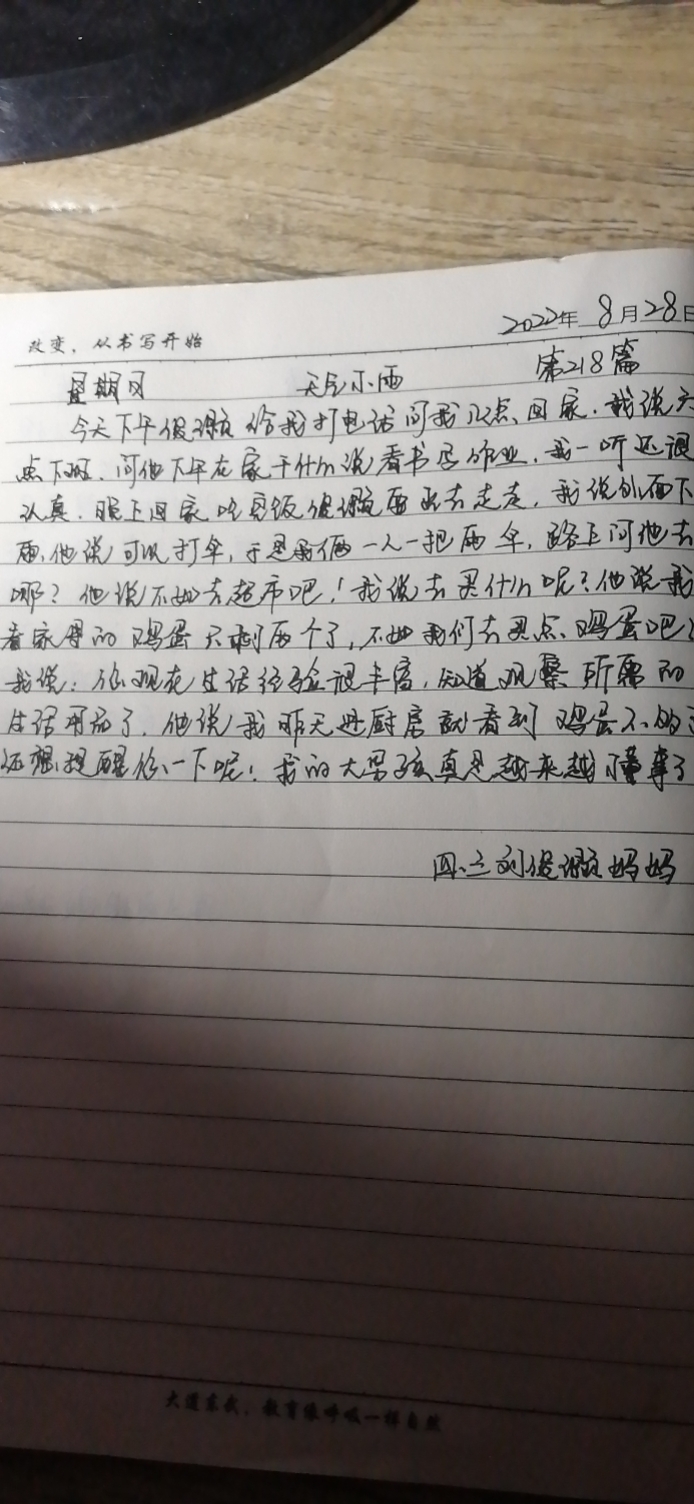 2022年 8月28日
改变，从书写开始
星期日 天气小雨 第218篇
今天下午俊 给我打电话问我几点回家．我说六
点下班．问他下午在家干什么说看书写作业，我一听还很
认真．晚上回家吃完饭俊 要出去走走，我说外面下
雨，他说可以打伞，于是我俩一人一把雨伞，路上问他去
哪？他说不如去超市吧！我说去买什么呢？他说我
看家里的鸡蛋只剩两个了，不如我们去买点鸡蛋吧！
我说：你现在生活经验很丰富，知道观察所需的
生活用品了．他说我昨天进厨房就看到鸡蛋不够了
还想提醒你一下呢！我的大男孩真是越来越懂事了
四．三刘俊 妈妈
大道至我，教育像呼吸一样自然